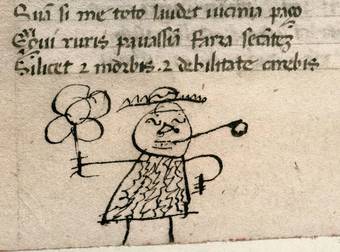 Quā si me toto laudet uicinia pago
Exigui ruris pauassiā farra secātē
Scilicet ⁊ morbis .⁊ debilitate carebis